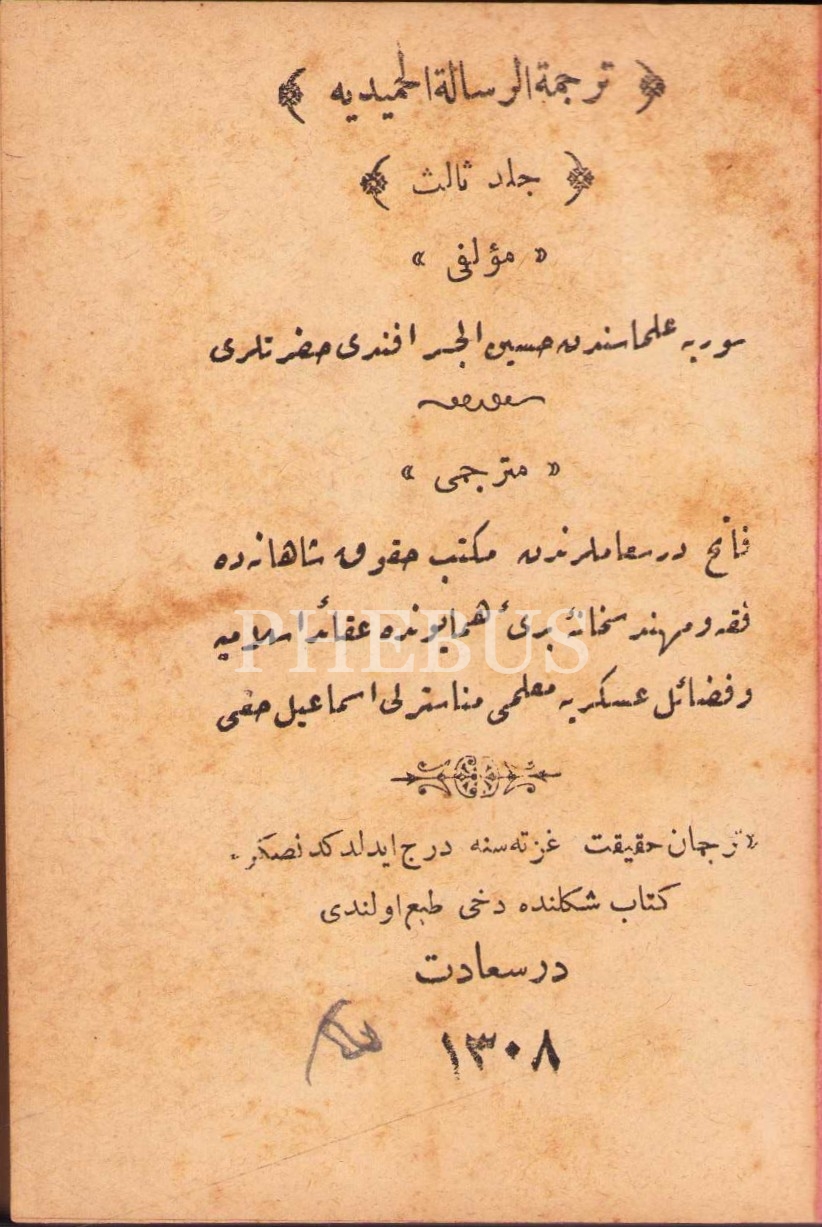 ﴿ ترجمة الرسالة الحميديه ﴾
﴿ جلد ثالث ﴾
« مؤلفى »
سوريه علماسندن حسين الجسر افندى حضرتلرى
« مترجمى »
فاتح درسعاملرندن مكتب حقوق شاهانه ده
فقه و مهندسخانۀ برئ همايونده عقائد اسلاميه
و فضائل عسكريه معلمى مناسترلى اسماعيل حقى
PHEBUS
« ترجمان حقيقت غزته سنه درج ايدلدكدنصكره
كتاب شكلنده دخى طبع اولندى
درسعادت
١٣٠٨